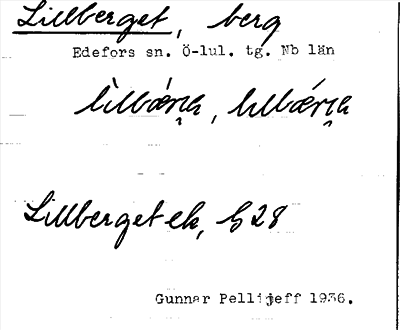 Lillberget, berg
Edefors sn. Ö-lul. tg. Nb län
Lillberget ek, G 28
Gunnar Pellijeff 1936.